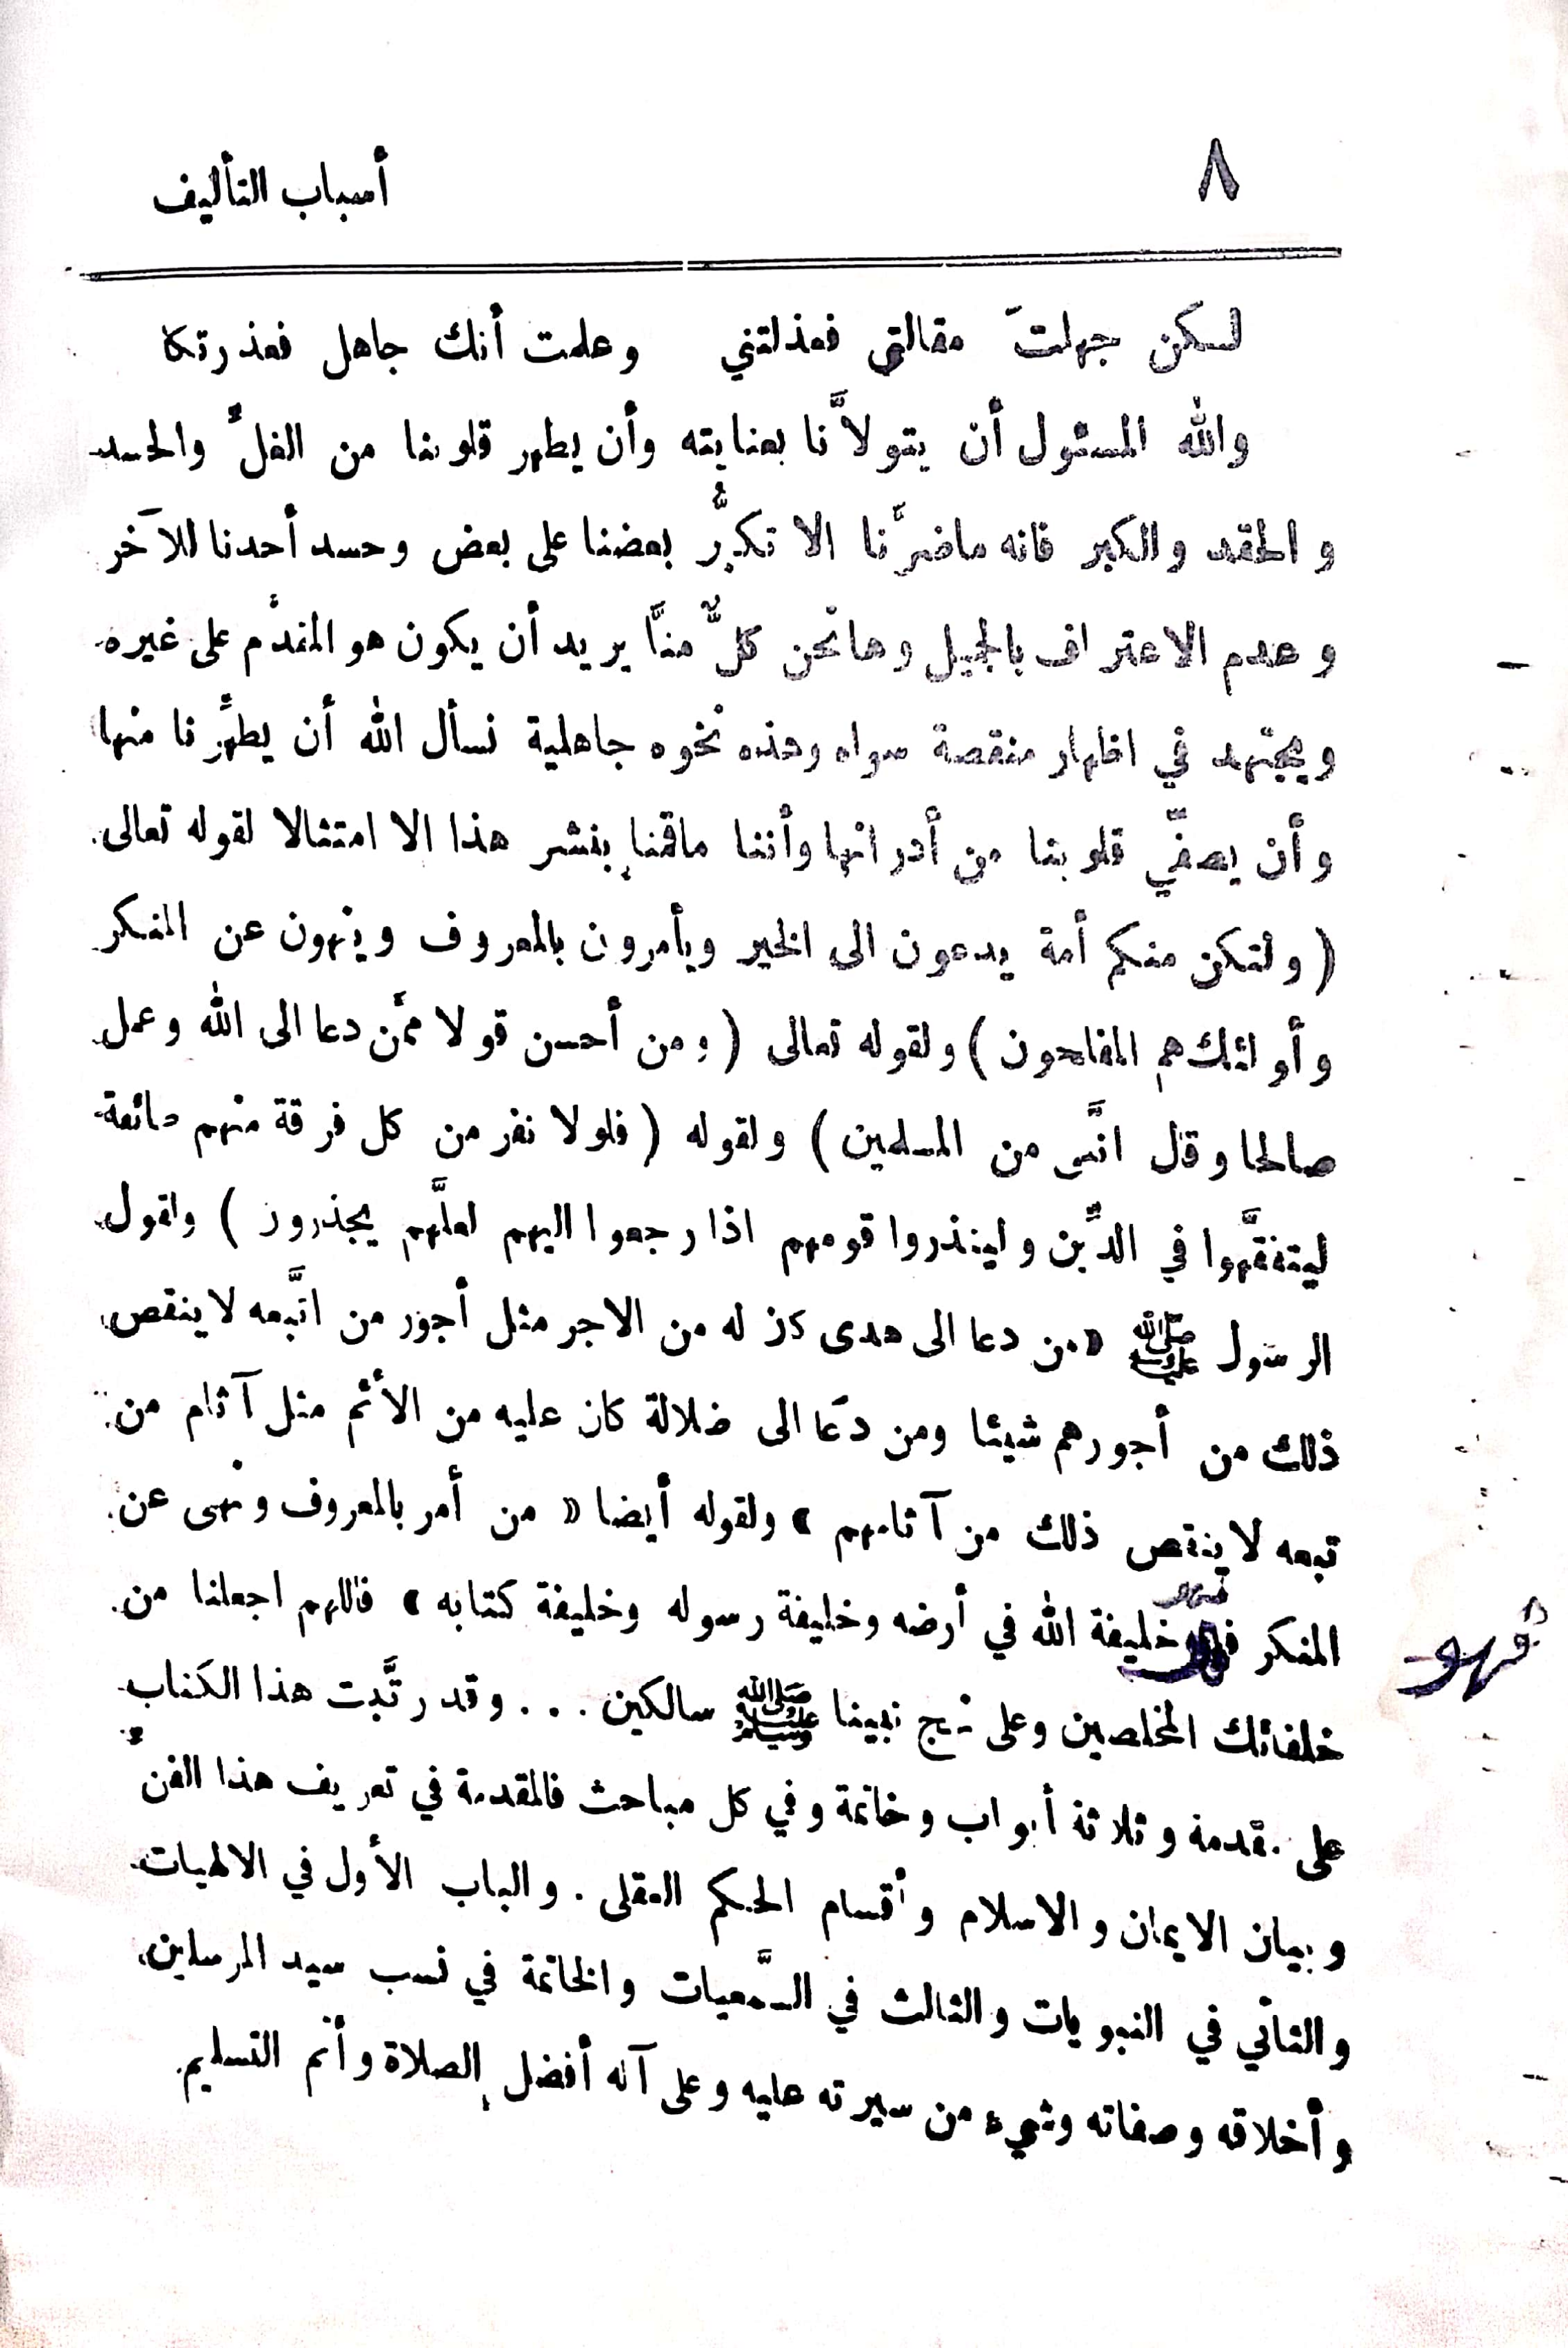 ٨
أسباب التأليف
لكن جهلتَ مقالتي فعذلتني وعلمت أنك جاهل فعذرتكا
والله المسئول أن يتولاَّنا بعنايته وأن يطهر قلوبنا من الغلِّ والحسد
والحقد والكبر فانه ماضرَّنا الا تكبُّر بعضنا على بعض وحسد أحدنا للآخر
وعدم الاعتراف بالجميل وهانحن كلٌّ منَّا يريد أن يكون هو المقدَّم على غيره
ويجتهد في اظهار منقصة سواه وهذه نخوه جاهلية نسأل الله أن يطهِّرنا منها
وأن يصفِّي قلوبنا من أدرانها وأننا ماقمنا بنشر هذا الا امتثالا لقوله تعالى
( ولتكن منكم أمة يدعون الى الخير ويأمرون بالمعروف وينهون عن المنكر
وأولئك هم المفلحون ) ولقوله تعالى ( ومن أحسن قولا ممَّن دعا الى الله وعمل
صالحا وقال انَّني من المسلمين ) ولقوله ( فلولا نفر من كل فرقة منهم طائفة
ليتفقَّهوا في الدِّين ولينذروا قومهم اذا رجعوا اليهم لعلَّهم يحذرون ) ولقول
الرسول ﷺ « من دعا الى هدى كان له من الاجر مثل أجور من اتَّبعه لاينقص
ذلك من أجورهم شيئا ومن دعا الى ضلالة كان عليه من الأثم مثل آثام من
تبعه لاينقص ذلك من آثامهم » ولقوله أيضا « من أمر بالمعروف ونهى عن
فهو
المنكر خليفة الله في أرضه وخليفة رسوله وخليفة كتابه » فاللهم اجعلنا من
فهو
خلفائك المخلصين وعلى نهج نبينا ﷺ سالكين . . . وقد رتَّبت هذا الكتاب
على مقدمة وثلاثة أبواب وخاتمة وفي كل مباحث فالمقدمة في تعريف هذا الفنِّ
وبيان الايمان والاسلام وأقسام الحكم العقلى . والباب الأول في الالهيات
والثاني في النبويات والثالث في السَّمعيات والخاتمة في نسب سيد المرسلين
وأخلاقه وصفاته وشيء من سيرته عليه وعلى آله أفضل الصلاة وأتم التسليم